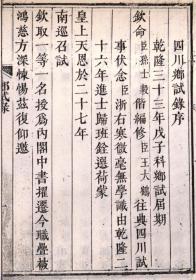 四川鄉試錄序
乾隆三十三年戊子科鄉試屆期
欽命臣孫士毅偕編修臣王大鶴往典四川試
事伏念臣浙右寒微毫無學識由乾隆二
十六年進士歸班銓選荷蒙
皇上天恩於二十七年
南巡召試
欽取一等一名授爲內閣中書擢遷今職疊被
鴻慈方深悚惕茲復仰邀